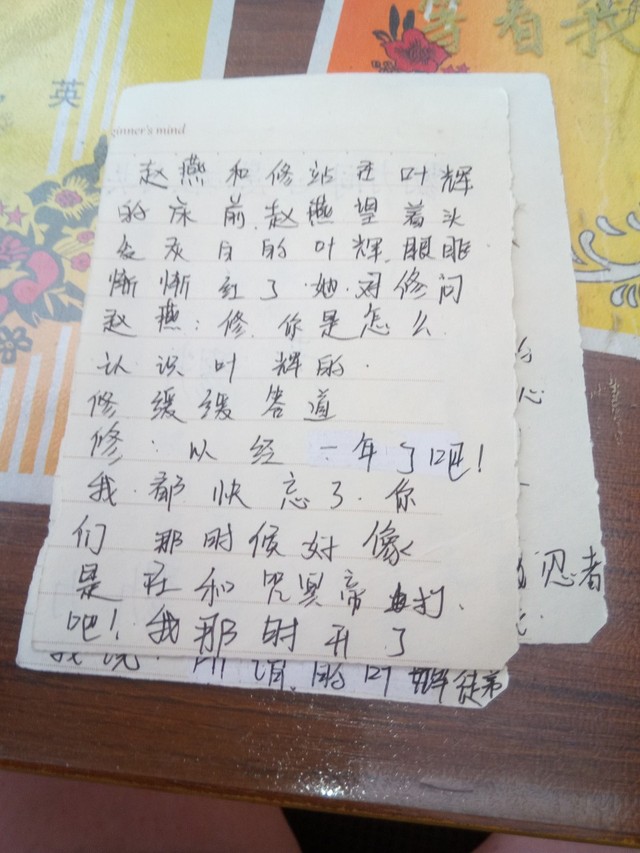 英
看我
ginner's mind
赵燕和修站在叶辉
的床前,赵燕望着头
发灰白的叶辉,眼眶
惭惭红了.她对修问
赵燕:修,你是怎么
认识叶辉的.
修缓缓答道
修:以经 年了吧!
我都快忘了.你
们那时候好像
是在和咒冥帝 打.
吧!我那时开了
我说. 的叶辉徒弟
心
忍者